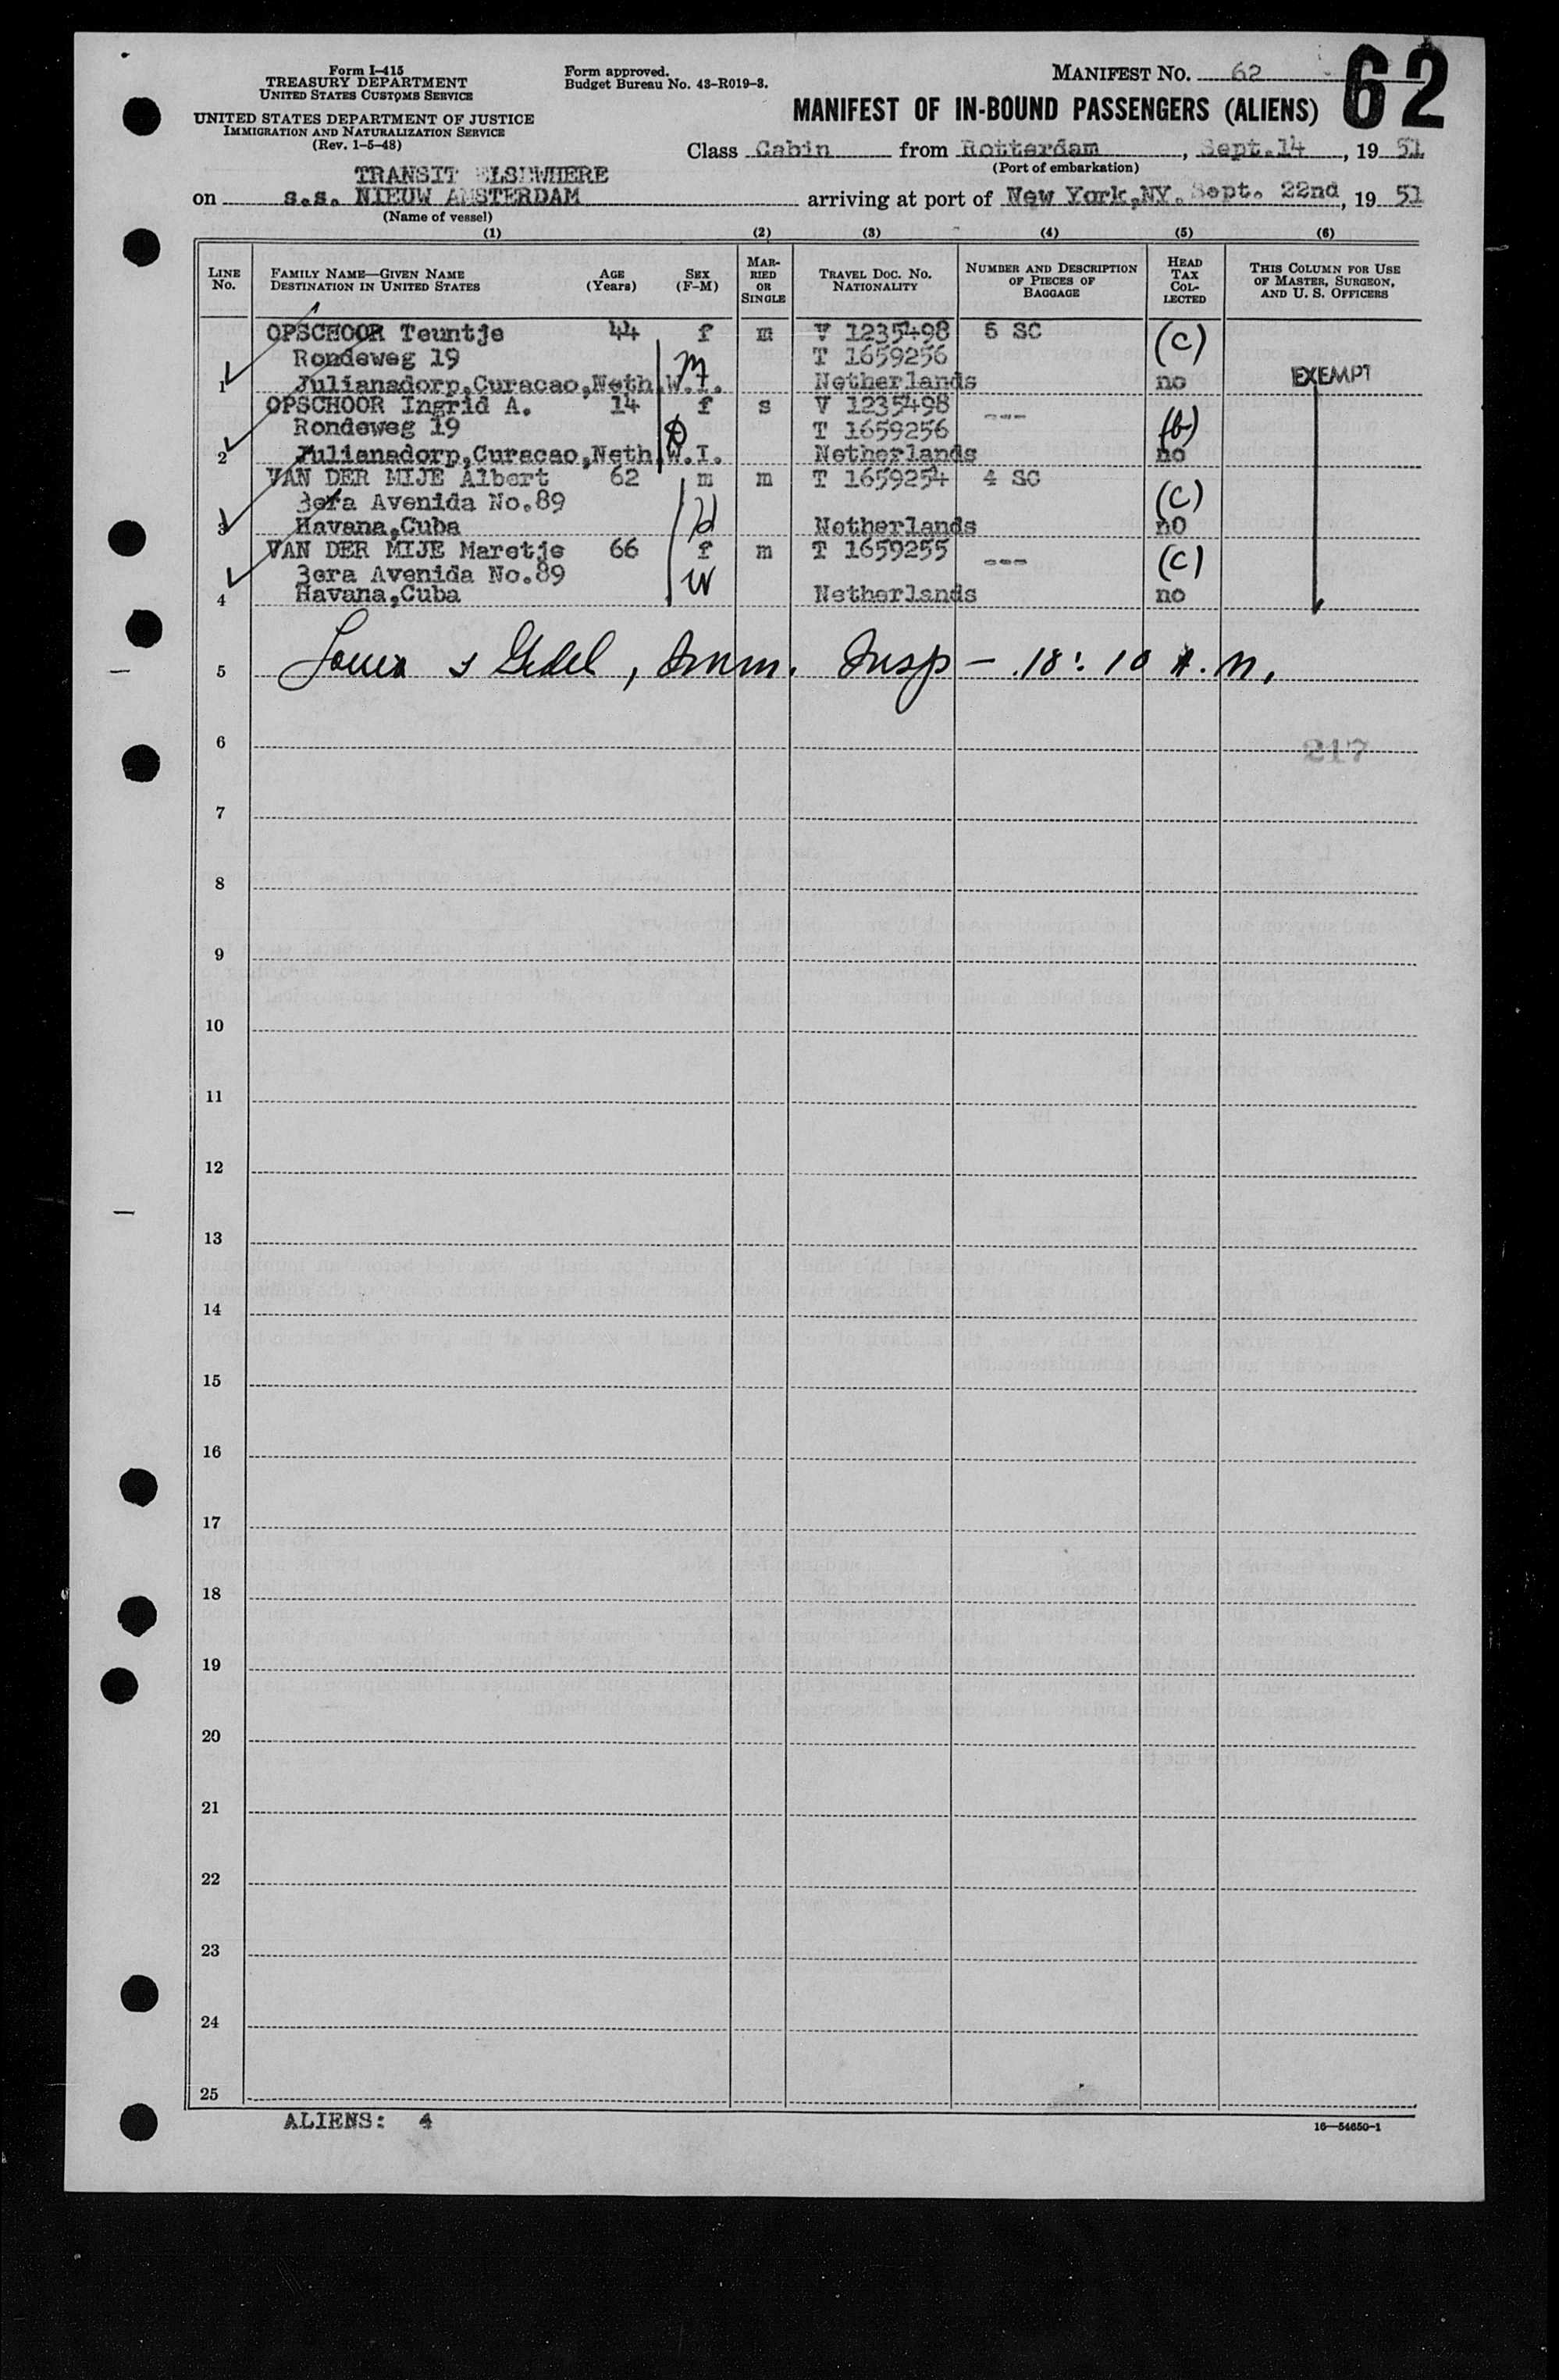 Form I-415
TREASURY DEPARTMENT
UNITED STATES CUSTOMS SERVICE
UNITED STATES DEPARTMENT OF JUSTICE
IMMIGRATION AND NATURALIZATION SERVICE
(Rev. 1-5-48)
Form approved.
Budget Bureau No. 43-R019-3.
MANIFEST No. 62
62
MANIFEST OF IN-BOUND PASSENGERS (ALIENS)
Class Cabin from Rotterdam, Sept.14, 19 51
(Port of embarkation)
TRANSIT ELSEWHERE
on s.s. NIEUW AMSTERDAM arriving at port of New York,NY. Sept. 22nd, 19 51
(Name of vessel)
(1) (2) (3) (4) (5) (6)
LINE No. FAMILY NAME—GIVEN NAME DESTINATION IN UNITED STATES AGE (Years) SEX (F-M) MARRIED OR SINGLE TRAVEL DOC. NO. NATIONALITY NUMBER AND DESCRIPTION OF PIECES OF BAGGAGE HEAD TAX COLLECTED THIS COLUMN FOR USE OF MASTER, SURGEON, AND U. S. OFFICERS
OPSCHOOR Teuntje 44 f m V 1235498 5 SC (c)
Rondeweg 19 M T 1659256
1 Julianadorp,Curacao,Neth.W.I. Netherlands no EXEMPT
OPSCHOOR Ingrid A. 14 f s V 1235498 ---
Rondeweg 19 D T 1659256 (b)
2 Julianadorp,Curacao,Neth.W.I. Netherlands no
VAN DER MIJE Albert 62 m m T 1659254 4 SC
3era Avenida No.89 H (c)
3 Havana,Cuba Netherlands nO
VAN DER MIJE Maretje 66 f m T 1659255 --- (c)
3era Avenida No.89 W
4 Havana,Cuba Netherlands no
5 Imm. Insp — 10 A.M.
6
217
7
8
9
10
11
12
13
14
15
16
17
18
19
20
21
22
23
24
25
ALIENS: 4
16—54650-1